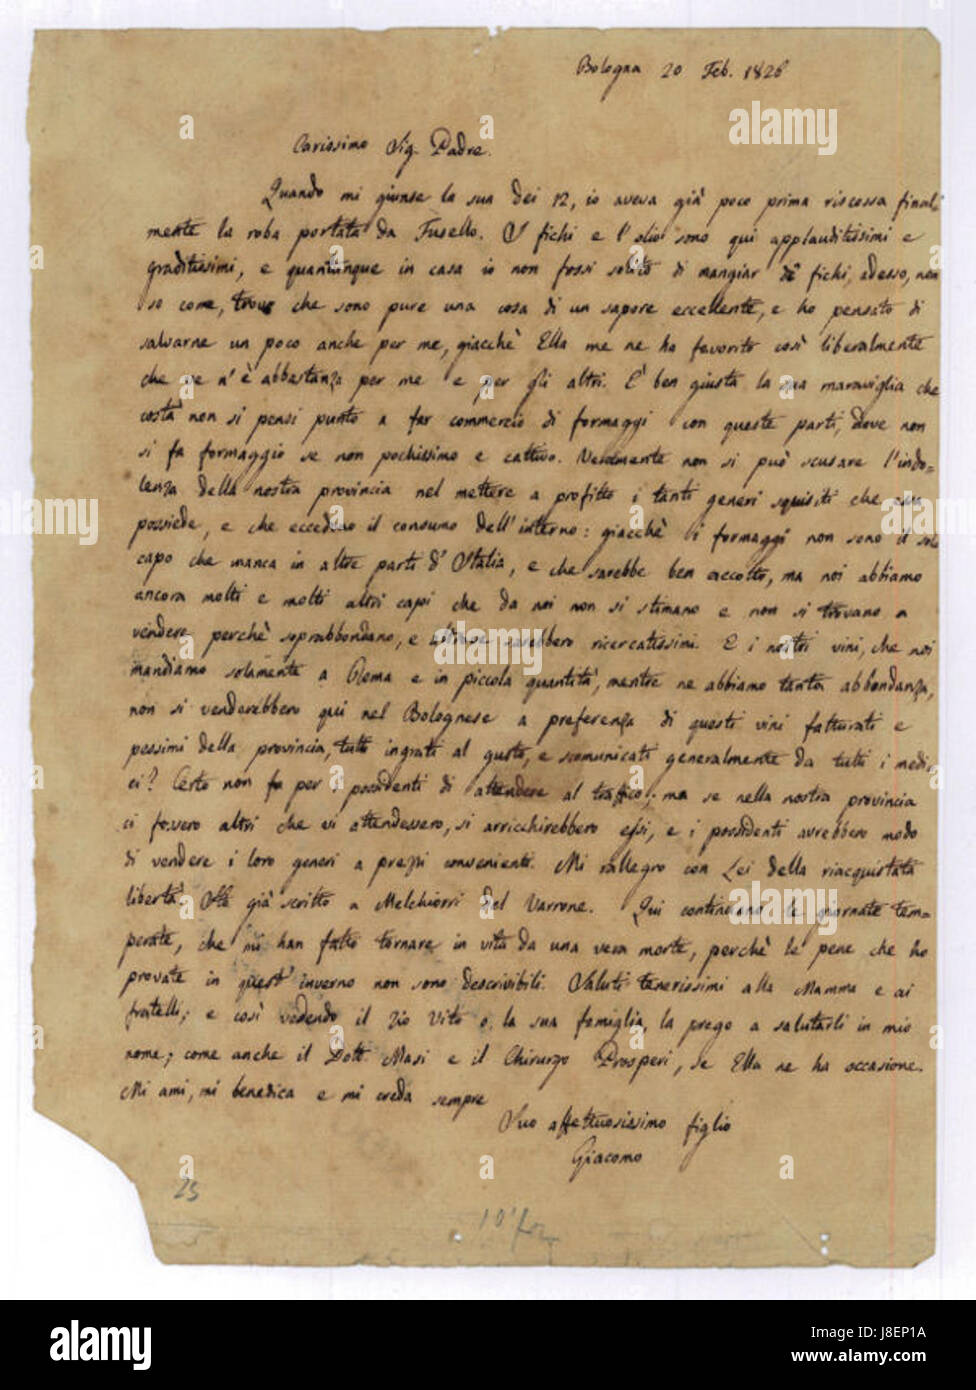 Bologna 20 Feb. 1826
Carissimo Sig. Padre.
Quando mi giunse la sua dei 12, io aveva già poco prima riscossa final-
mente la roba portata da Fusello. I fichi e l'olio sono qui applauditissimi e
graditissimi, e quantunque in casa io non fossi solito di mangiar fichi, adesso, non
so come, trovo che sono pure una cosa di un sapore eccellente, e ho pensato di
salvarne un poco anche per me, giacchè Ella me ne ha favorito così liberalmente
che ve n'è abbastanza per me e per gli altri. È ben giusta la sua maraviglia che
costà non si pensi punto a far commercio di formaggi con queste parti, dove non
si fa formaggio se non pochissimo e cattivo. Veramente non si può scusare l'indo-
lenza della nostra provincia nel mettere a profitto i tanti generi squisiti che essa
possiede, e che eccedono il consumo dell'interno: giacchè i formaggi non sono il solo
capo che manca in altre parti d'Italia, e che sarebbe ben accolto, ma noi abbiamo
ancora molti e molti altri capi che da noi non si stimano e non si trovano a
vendere perchè soprabbondano, e altrove sarebbero ricercatissimi. E i nostri vini, che noi
mandiamo solamente a Roma e in piccola quantità, mentre ne abbiamo tanta abbondanza,
non si venderebbero qui nel Bolognese a preferenza di questi vini fatturati e
pessimi della provincia, tutti ingrati al gusto, e scomunicati generalmente da tutti i medi-
ci? Certo non fa per i possidenti di attendere al traffico; ma se nella nostra provincia
ci fossero altri che vi attendessero, si arricchirebbero essi, e i possidenti avrebbero modo
di vendere i loro generi a prezzi convenienti. Mi rallegro con Lei della riacquistata
libertà. Ho già scritto a Melchiorri del Varrone. Qui continuano le giornate tem-
perate, che mi han fatto tornare in vita da una vera morte, perchè le pene che ho
provate in quest'inverno non sono descrivibili. Saluti tenerissimi alla Mamma e ai
fratelli; e così vedendo il Zio Vito o la sua famiglia, la prego a salutarli in mio
nome; come anche il Dott. Masi e il Chirurgo Prosperi, se Ella ne ha occasione.
Mi ami, mi benedica e mi creda sempre
Suo affettuosissimo figlio
Giacomo
25
alamy
Image ID: J8EP1A
www.alamy.com